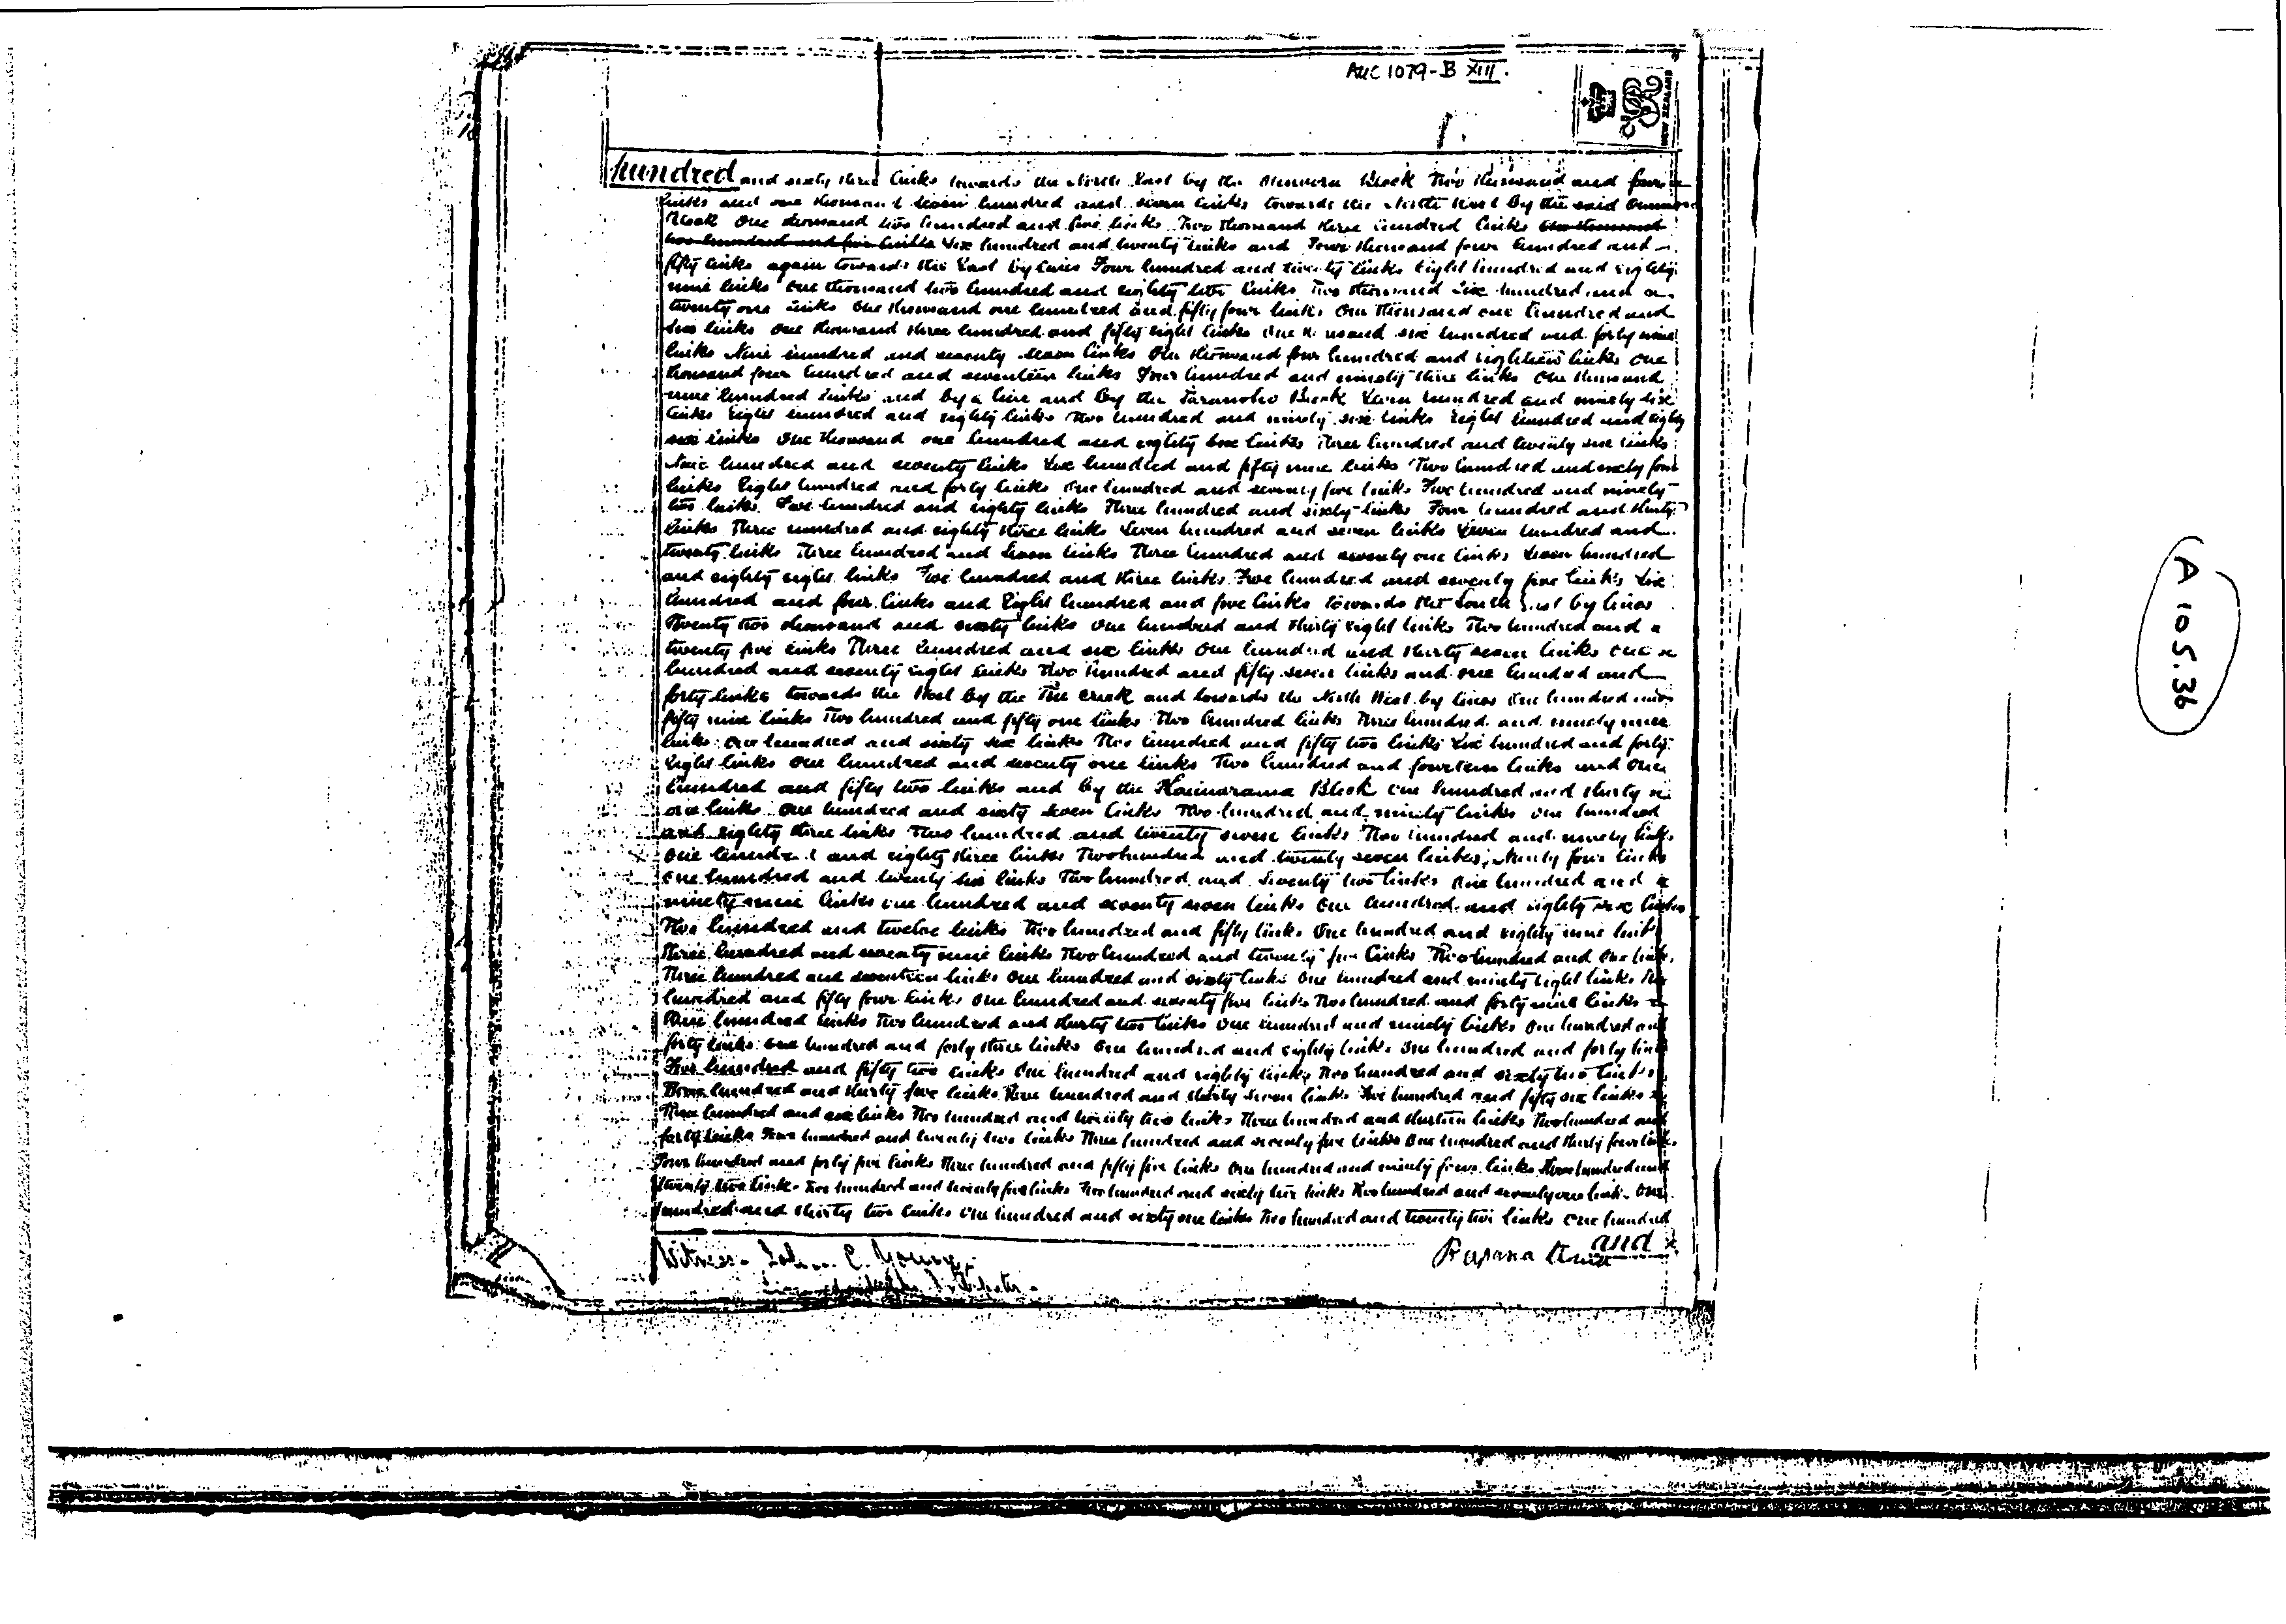 AUC 1079-B XIII.
NEW ZEALAND
1.
A 105.36
hundred and sixty three links towards the North East by the Block Two thousand and four
links and one thousand seven hundred and seven links towards the North West by the said
Block One thousand two hundred and five links Two thousand three hundred links One thousand
two hundred and five links Six hundred and twenty links and Four thousand four hundred and
fifty links again towards the East by lines Four hundred and links Eight hundred and eighty
nine links One thousand two hundred and eighty links Two thousand six hundred and
twenty one links One thousand one hundred and fifty four links One thousand one hundred and
two links One thousand three hundred and fifty eight links One thousand six hundred and forty nine
links Nine hundred and seventy seven links One thousand four hundred and eighteen links One
thousand four hundred and seventeen links Four hundred and ninety three links One thousand
nine hundred links and by a line and by the Block Seven hundred and ninety six
links Eight hundred and eighty links Two hundred and ninety six links Eight hundred and eighty
six links One thousand one hundred and eighty links Three hundred and twenty one links
Nine hundred and seventy links Six hundred and fifty nine links Two hundred and sixty four
links Eight hundred and forty links One hundred and seventy five links Five hundred and ninety
two links Five hundred and eighty links Three hundred and sixty links Four hundred and thirty
links Three hundred and eighty three links Seven hundred and seven links Seven hundred and
twenty links Three hundred and seven links Three hundred and seventy one links Seven hundred
and eighty eight links Five hundred and three links Five hundred and seventy five links Six
hundred and four links and Eight hundred and five links towards the South East by lines
Twenty two thousand and sixty links One hundred and thirty eight links Two hundred and
twenty five links Three hundred and six links One hundred and thirty seven links One
hundred and seventy eight links Two hundred and fifty seven links and one hundred and
forty links towards the West by the Creek and towards the North West by lines One hundred and
fifty nine links Two hundred and fifty one links Two hundred links Three hundred and ninety nine
links One hundred and sixty six links Two hundred and fifty two links Six hundred and forty
eight links One hundred and seventy one links Two hundred and fourteen links and One
hundred and fifty two links and by the Block One hundred and thirty
one links One hundred and sixty seven links Two hundred and ninety links One hundred
and eighty three links Two hundred and twenty seven links Two hundred and ninety links
One hundred and eighty three links Two hundred and twenty seven links Ninety four links
One hundred and twenty six links Two hundred and seventy two links One hundred and
ninety nine links One hundred and seventy seven links One hundred and eighty six links
Two hundred and twelve links Two hundred and fifty links One hundred and eighty nine links
Three hundred and seventy nine links Two hundred and twenty five links Two hundred and One links
Three hundred and seventeen links One hundred and sixty links One hundred and ninety eight links
hundred and fifty four links One hundred and seventy five links Two hundred and forty nine links
hundred links Two hundred and thirty two links One hundred and ninety links One hundred and
forty links One hundred and forty three links One hundred and eighty links One hundred and forty links
hundred and fifty two links One hundred and eighty links Two hundred and sixty two links
hundred and thirty five links Five hundred and thirty seven links Five hundred and fifty six links
Three hundred and six links Two hundred and twenty two links Three hundred and thirteen links Two hundred and
forty links Four hundred and twenty two links Three hundred and seventy five links One hundred and thirty four links
Four hundred and forty five links Three hundred and fifty five links One hundred and ninety four links Three hundred and
twenty two links Two hundred and twenty five links Two hundred and sixty links Two hundred and seventy one links One
hundred and thirty two links One hundred and sixty one links Two hundred and twenty two links One hundred
and
Witness